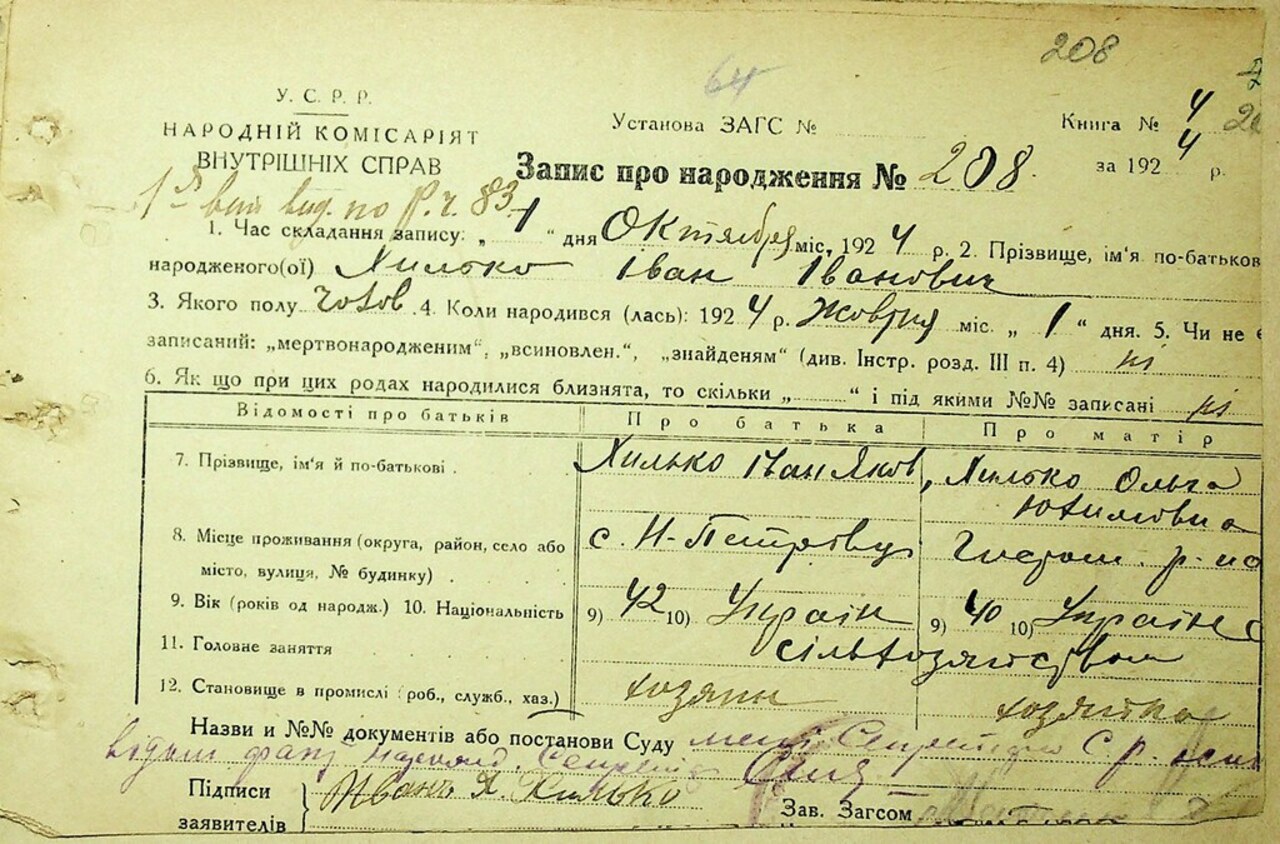 208
64
У. С. Р. Р.
НАРОДНІЙ КОМІСАРІЯТ
ВНУТРІШНІХ СПРАВ
Установа ЗАГС №
Книга № 4
Запис про народження № 208.
за 1924 р.
вид. по Р. ч. 83
1. Час складання запису: „ 1 “ дня Октября міс, 1924 р. 2. Прізвище, ім'я по-батьков
народженого(ої) Хилько Іван Іванович
3. Якого полу чолов. 4. Коли народився (лась): 1924 р. Жовтня міс. „ 1 “ дня. 5. Чи не є
записаний: „мертвонародженим“, „всиновлен.“, „знайденям“ (див. Інстр. розд. III п. 4) ні
6. Як що при цих родах народилися близнята, то скільки „ “ і під якими №№ записані ні
Відомості про батьків Про батька Про матір
7. Прізвище, ім'я й по-батькові. Хилько Іван Яков, Хилько Ольга
Юхимовна
8. Місце проживання (округа, район, село або
місто, вулиця, № будинку) . с. Н-Петрівці р-на
9. Вік (років од народж.) 10. Національність 9) 42 10) Україн 9) 40 10) Українс
11. Головне заняття сільхозяйством
12. Становище в промислі (роб., служб., хаз.) хозяин хозяйка
Назви и №№ документів або постанови Суду
Підписи
заявителів Иванъ Я. Хилько
Зав. Загсом